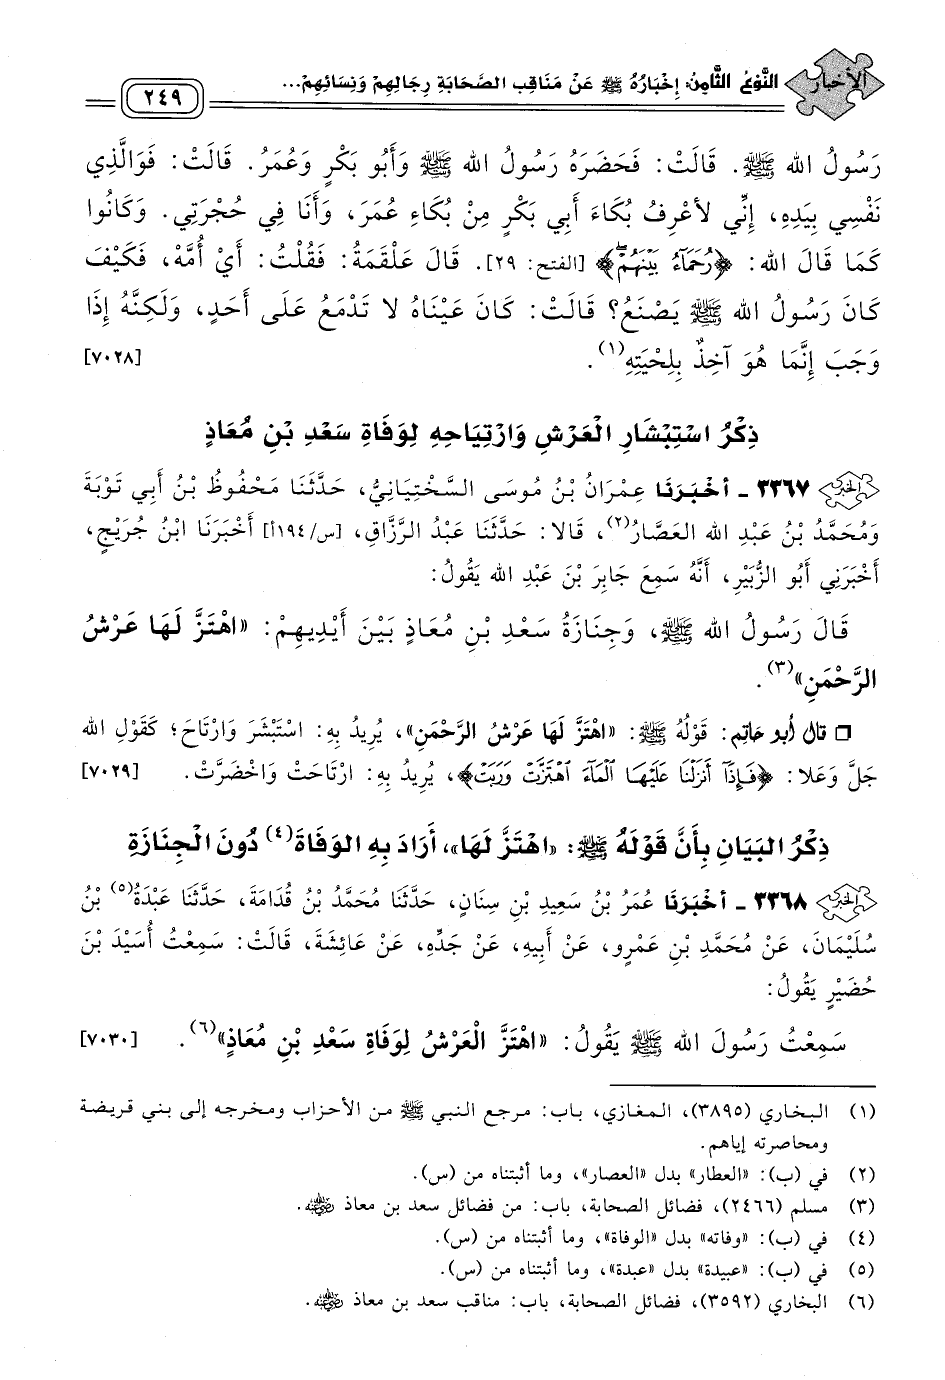 الأخبار
النَّوْعُ الثَّامِنُ: إِخْبَارُهُ ﷺ عَنْ مَنَاقِبِ الصَّحَابَةِ رِجَالِهِمْ وَنِسَائِهِمْ...
٢٤٩
رَسُولُ الله ﷺ. قَالَتْ: فَحَضَرَهُ رَسُولُ الله ﷺ وَأَبُو بَكْرٍ وَعُمَرُ. قَالَتْ: فَوَالَّذِي
نَفْسِي بِيَدِهِ، إِنِّي لأَعْرِفُ بُكَاءَ أَبِي بَكْرٍ مِنْ بُكَاءِ عُمَرَ، وَأَنَا فِي حُجْرَتِي. وَكَانُوا
كَمَا قَالَ الله: ﴿رُحَمَآءُ بَيۡنَهُمۡۖ﴾ [الفتح: ٢٩]. قَالَ عَلْقَمَةُ: فَقُلْتُ: أَيْ أُمَّهْ، فَكَيْفَ
كَانَ رَسُولُ الله ﷺ يَصْنَعُ؟ قَالَتْ: كَانَ عَيْنَاهُ لا تَدْمَعُ عَلَى أَحَدٍ، وَلَكِنَّهُ إِذَا
وَجَبَ إِنَّمَا هُوَ آخِذٌ بِلِحْيَتِهِ(١). [٧٠٢٨]
ذِكْرُ اسْتِبْشَارِ الْعَرْشِ وَارْتِيَاحِهِ لِوَفَاةِ سَعْدِ بْنِ مُعَاذٍ
٣٣٦٧ - أَخْبَرَنَا عِمْرَانُ بْنُ مُوسَى السَّخْتِيَانِيُّ، حَدَّثَنَا مَحْفُوظُ بْنُ أَبِي تَوْبَةَ
وَمُحَمَّدُ بْنُ عَبْدِ الله العَصَّارُ(٢)، قَالا: حَدَّثَنَا عَبْدُ الرَّزَّاقِ، [س/١٩٤أ] أَخْبَرَنَا ابْنُ جُرَيْجٍ،
أَخْبَرَنِي أَبُو الزُّبَيْرِ، أَنَّهُ سَمِعَ جَابِرَ بْنَ عَبْدِ الله يَقُولُ:
قَالَ رَسُولُ الله ﷺ، وَجِنَازَةُ سَعْدِ بْنِ مُعَاذٍ بَيْنَ أَيْدِيهِمْ: «اهْتَزَّ لَهَا عَرْشُ
الرَّحْمَنِ»(٣).
❒ قال أبو حاتم: قَوْلُهُ ﷺ: «اهْتَزَّ لَهَا عَرْشُ الرَّحْمَنِ»، يُرِيدُ بِهِ: اسْتَبْشَرَ وَارْتَاحَ؛ كَقَوْلِ الله
جَلَّ وَعَلا: ﴿فَإِذَآ أَنزَلۡنَا عَلَيۡهَا ٱلۡمَآءَ ٱهۡتَزَّتۡ وَرَبَتۡ﴾، يُرِيدُ بِهِ: ارْتَاحَتْ وَاخْضَرَّتْ. [٧٠٢٩]
ذِكْرُ البَيَانِ بِأَنَّ قَوْلَهُ ﷺ: «اهْتَزَّ لَهَا»، أَرَادَ بِهِ الوَفَاةَ(٤) دُونَ الْجِنَازَةِ
٣٣٦٨ - أَخْبَرَنَا عُمَرُ بْنُ سَعِيدِ بْنِ سِنَانٍ، حَدَّثَنَا مُحَمَّدُ بْنُ قُدَامَةَ، حَدَّثَنَا عَبْدَةُ(٥) بْنُ
سُلَيْمَانَ، عَنْ مُحَمَّدِ بْنِ عَمْرٍو، عَنْ أَبِيهِ، عَنْ جَدِّهِ، عَنْ عَائِشَةَ، قَالَتْ: سَمِعْتُ أُسَيْدَ بْنَ
حُضَيْرٍ يَقُولُ:
سَمِعْتُ رَسُولَ الله ﷺ يَقُولُ: «اهْتَزَّ الْعَرْشُ لِوَفَاةِ سَعْدِ بْنِ مُعَاذٍ»(٦). [٧٠٣٠]
(١) البخاري (٣٨٩٥)، المغازي، باب: مرجع النبي ﷺ من الأحزاب ومخرجه إلى بني قريضة
ومحاصرته إياهم.
(٢) في (ب): «العطار» بدل «العصار»، وما أثبتناه من (س).
(٣) مسلم (٢٤٦٦)، فضائل الصحابة، باب: من فضائل سعد بن معاذ رضي الله عنه.
(٤) في (ب): «وفاته» بدل «الوفاة»، وما أثبتناه من (س).
(٥) في (ب): «عبيدة» بدل «عبدة»، وما أثبتناه من (س).
(٦) البخاري (٣٥٩٢)، فضائل الصحابة، باب: مناقب سعد بن معاذ رضي الله عنه.